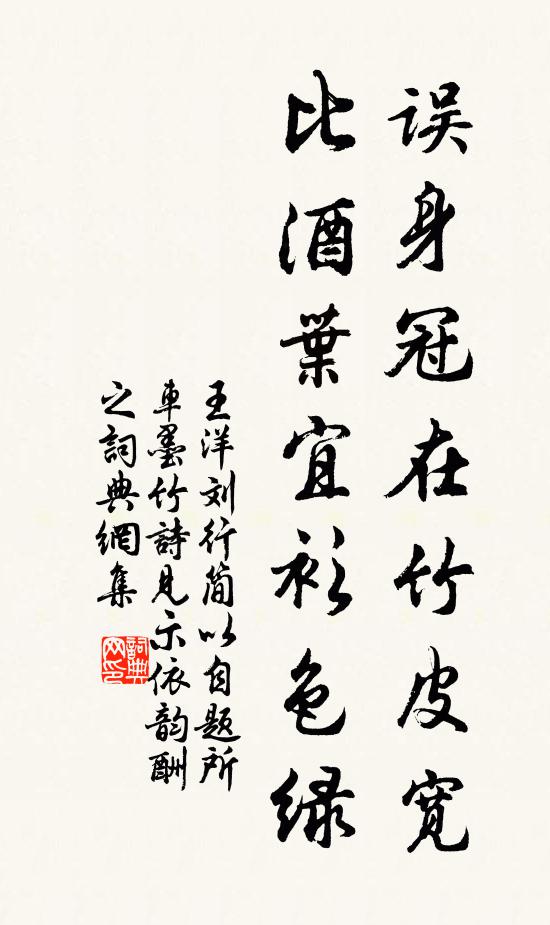 误身冠在竹皮宽
比酒葉宜衫色绿
王洋刘行简以自题所
車墨竹詩見示依韵酬
之詞典網集
詞典网印